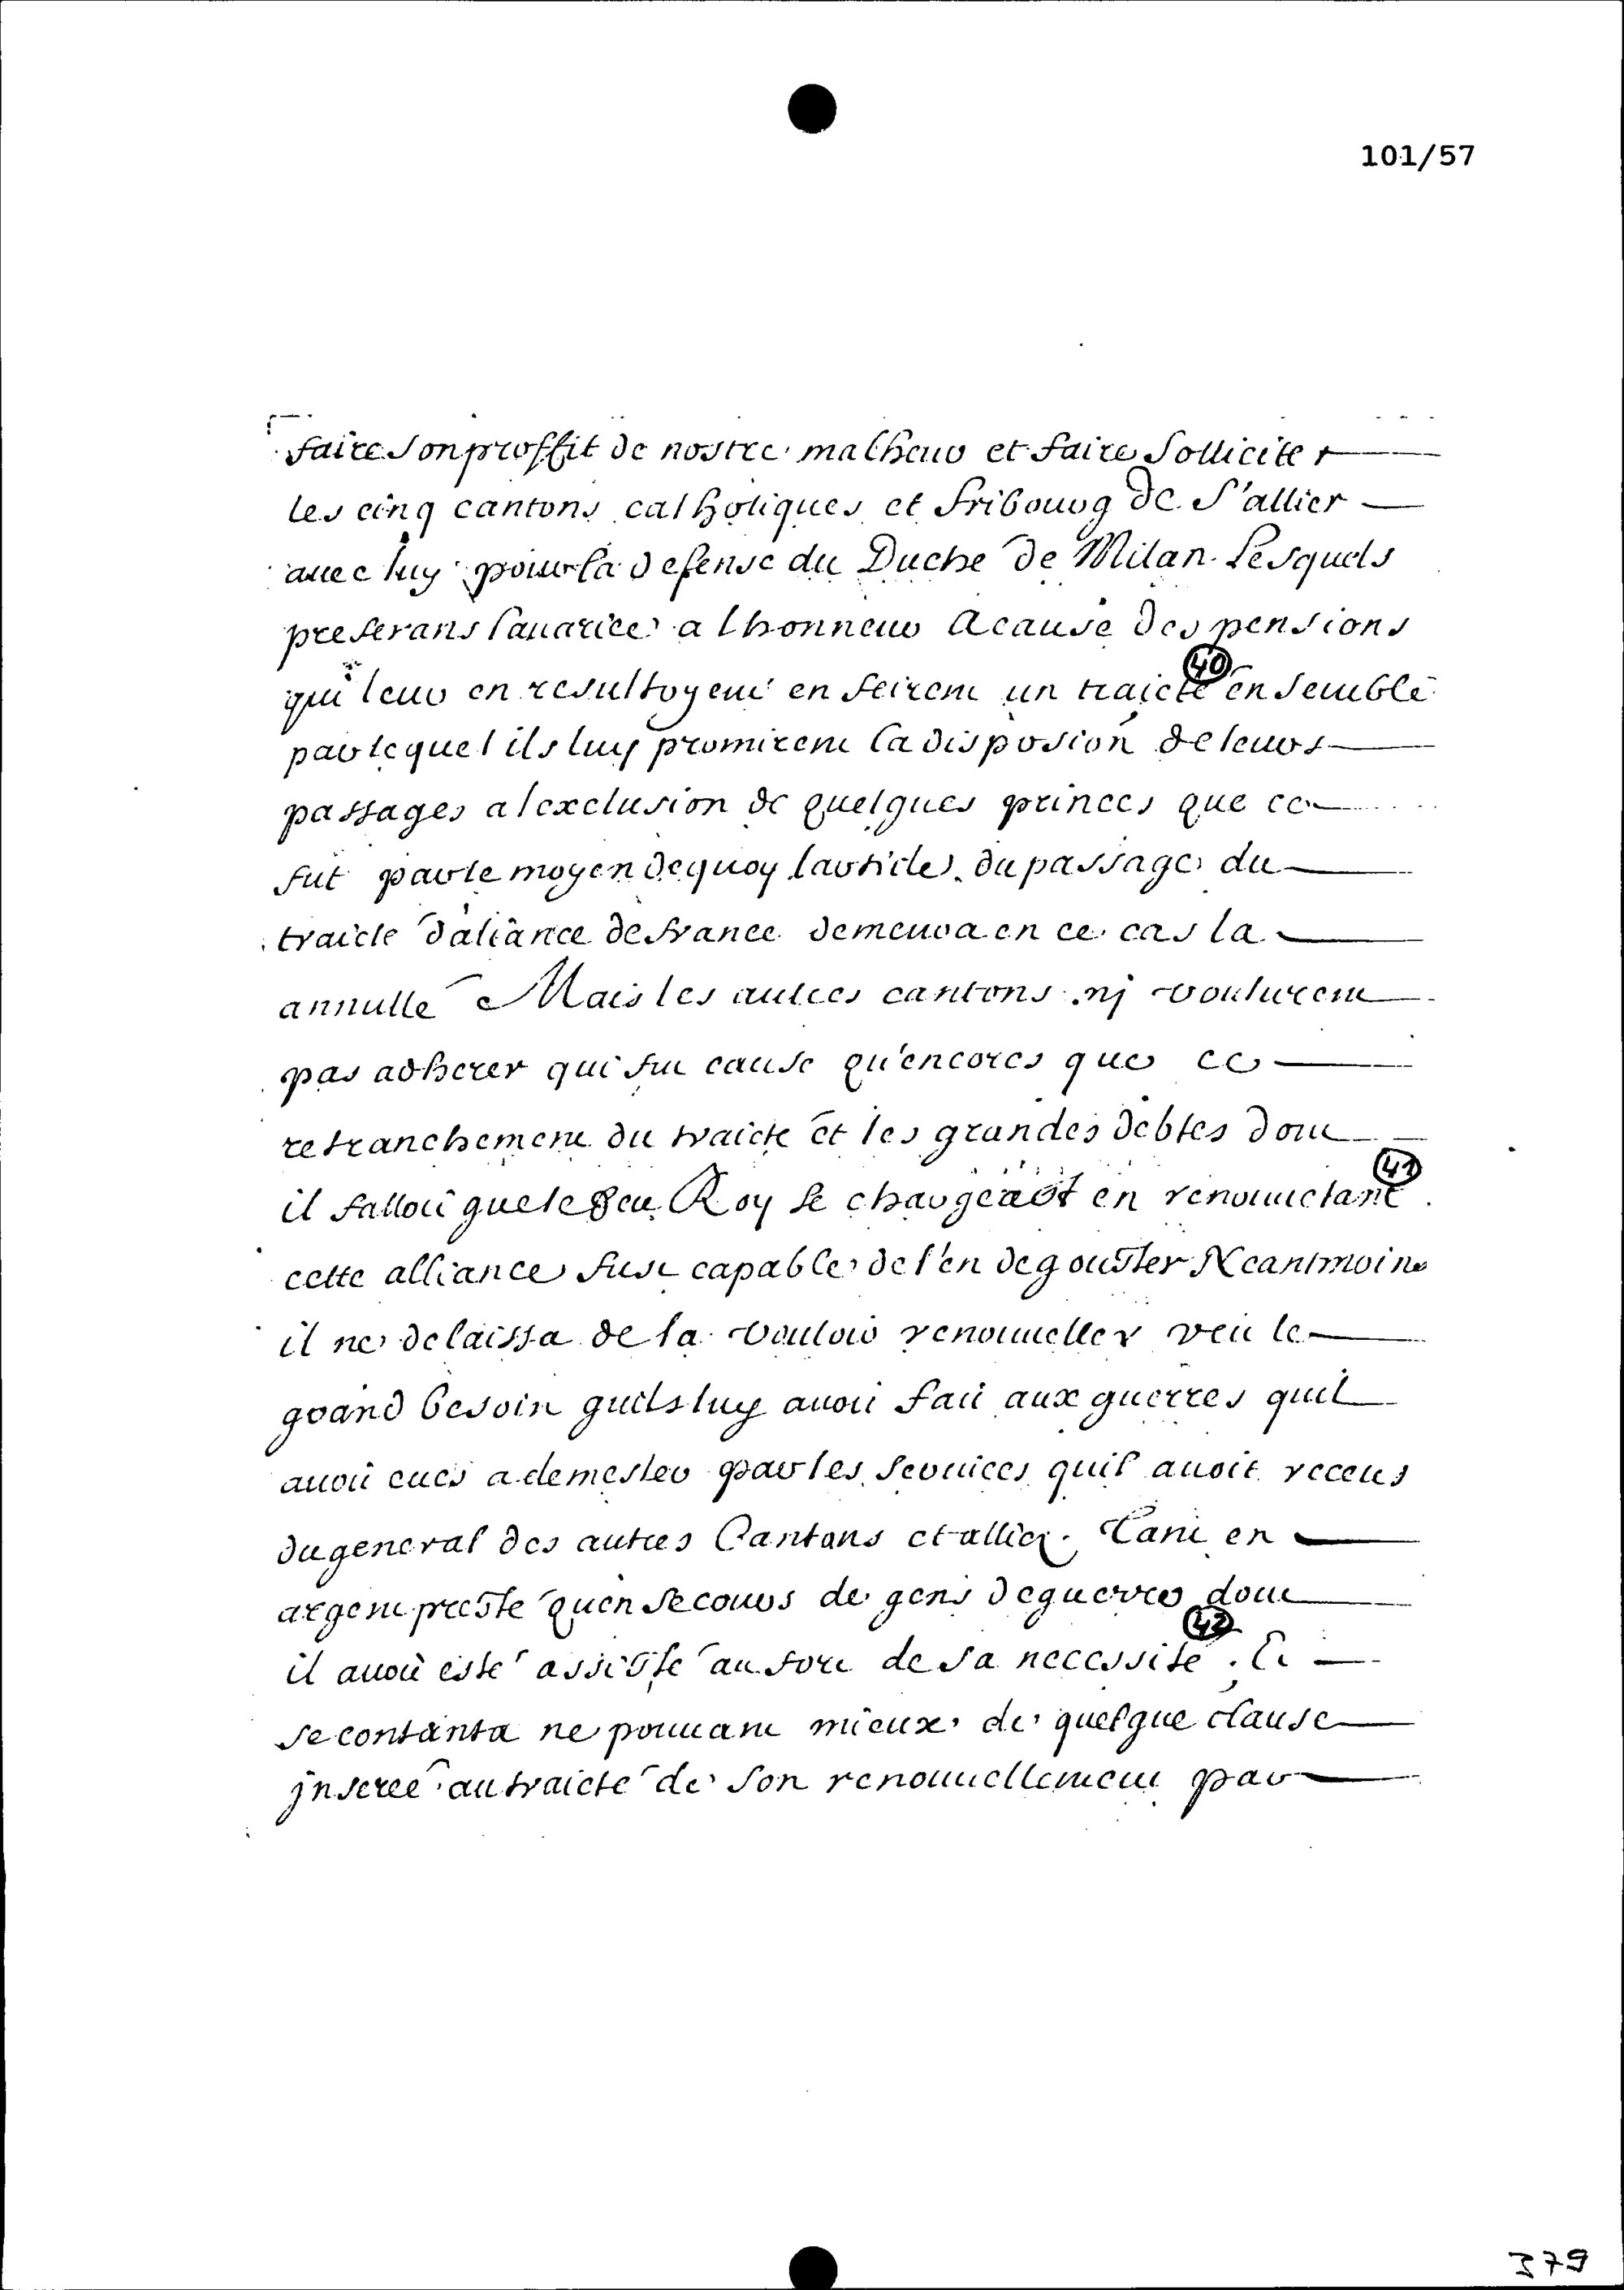 101/57
faire son proffit de nostre malheur et faire solliciter
les cinq cantons catholiques et fribourg de s'allier
avec luy pour la defense du Duche de Milan. Lesquels
preferans lavarice a lhonneur a cause des pensions
qui leur en resultoyent en feirent un traicté 40 ensemble
par lequel ils luy promirent la disposion de leurs
passages a lexclusion de quelques princes que ce
fut par le moyen de quoy larticle du passage du
traicte d'aliance de france demeura en ce cas la
annullé Mais les autres cantons nj voulurent
pas adherer qui fut cause qu'encores que ce
retranchement du traicte et les grandes debtes dont
il falloit que le feu Roy se chargeast en renouvelant 41
cette alliance fust capable de l'en degouster Neantmoins
il ne delaissa de la vouloir renouveller veu le
grand besoin quils luy avoit fait aux guerres quil
avoit eues a demesler par les services quil avoit receus
du general des autres Cantons et alliez. Tant en
argent presté qu'en secours de gens de guerre dont
il avoit esté assisté au fort de sa necessité 42. Et
se contanta ne pouvant mieux de quelque clause
jnseree au traicté de son renouvellement par
379